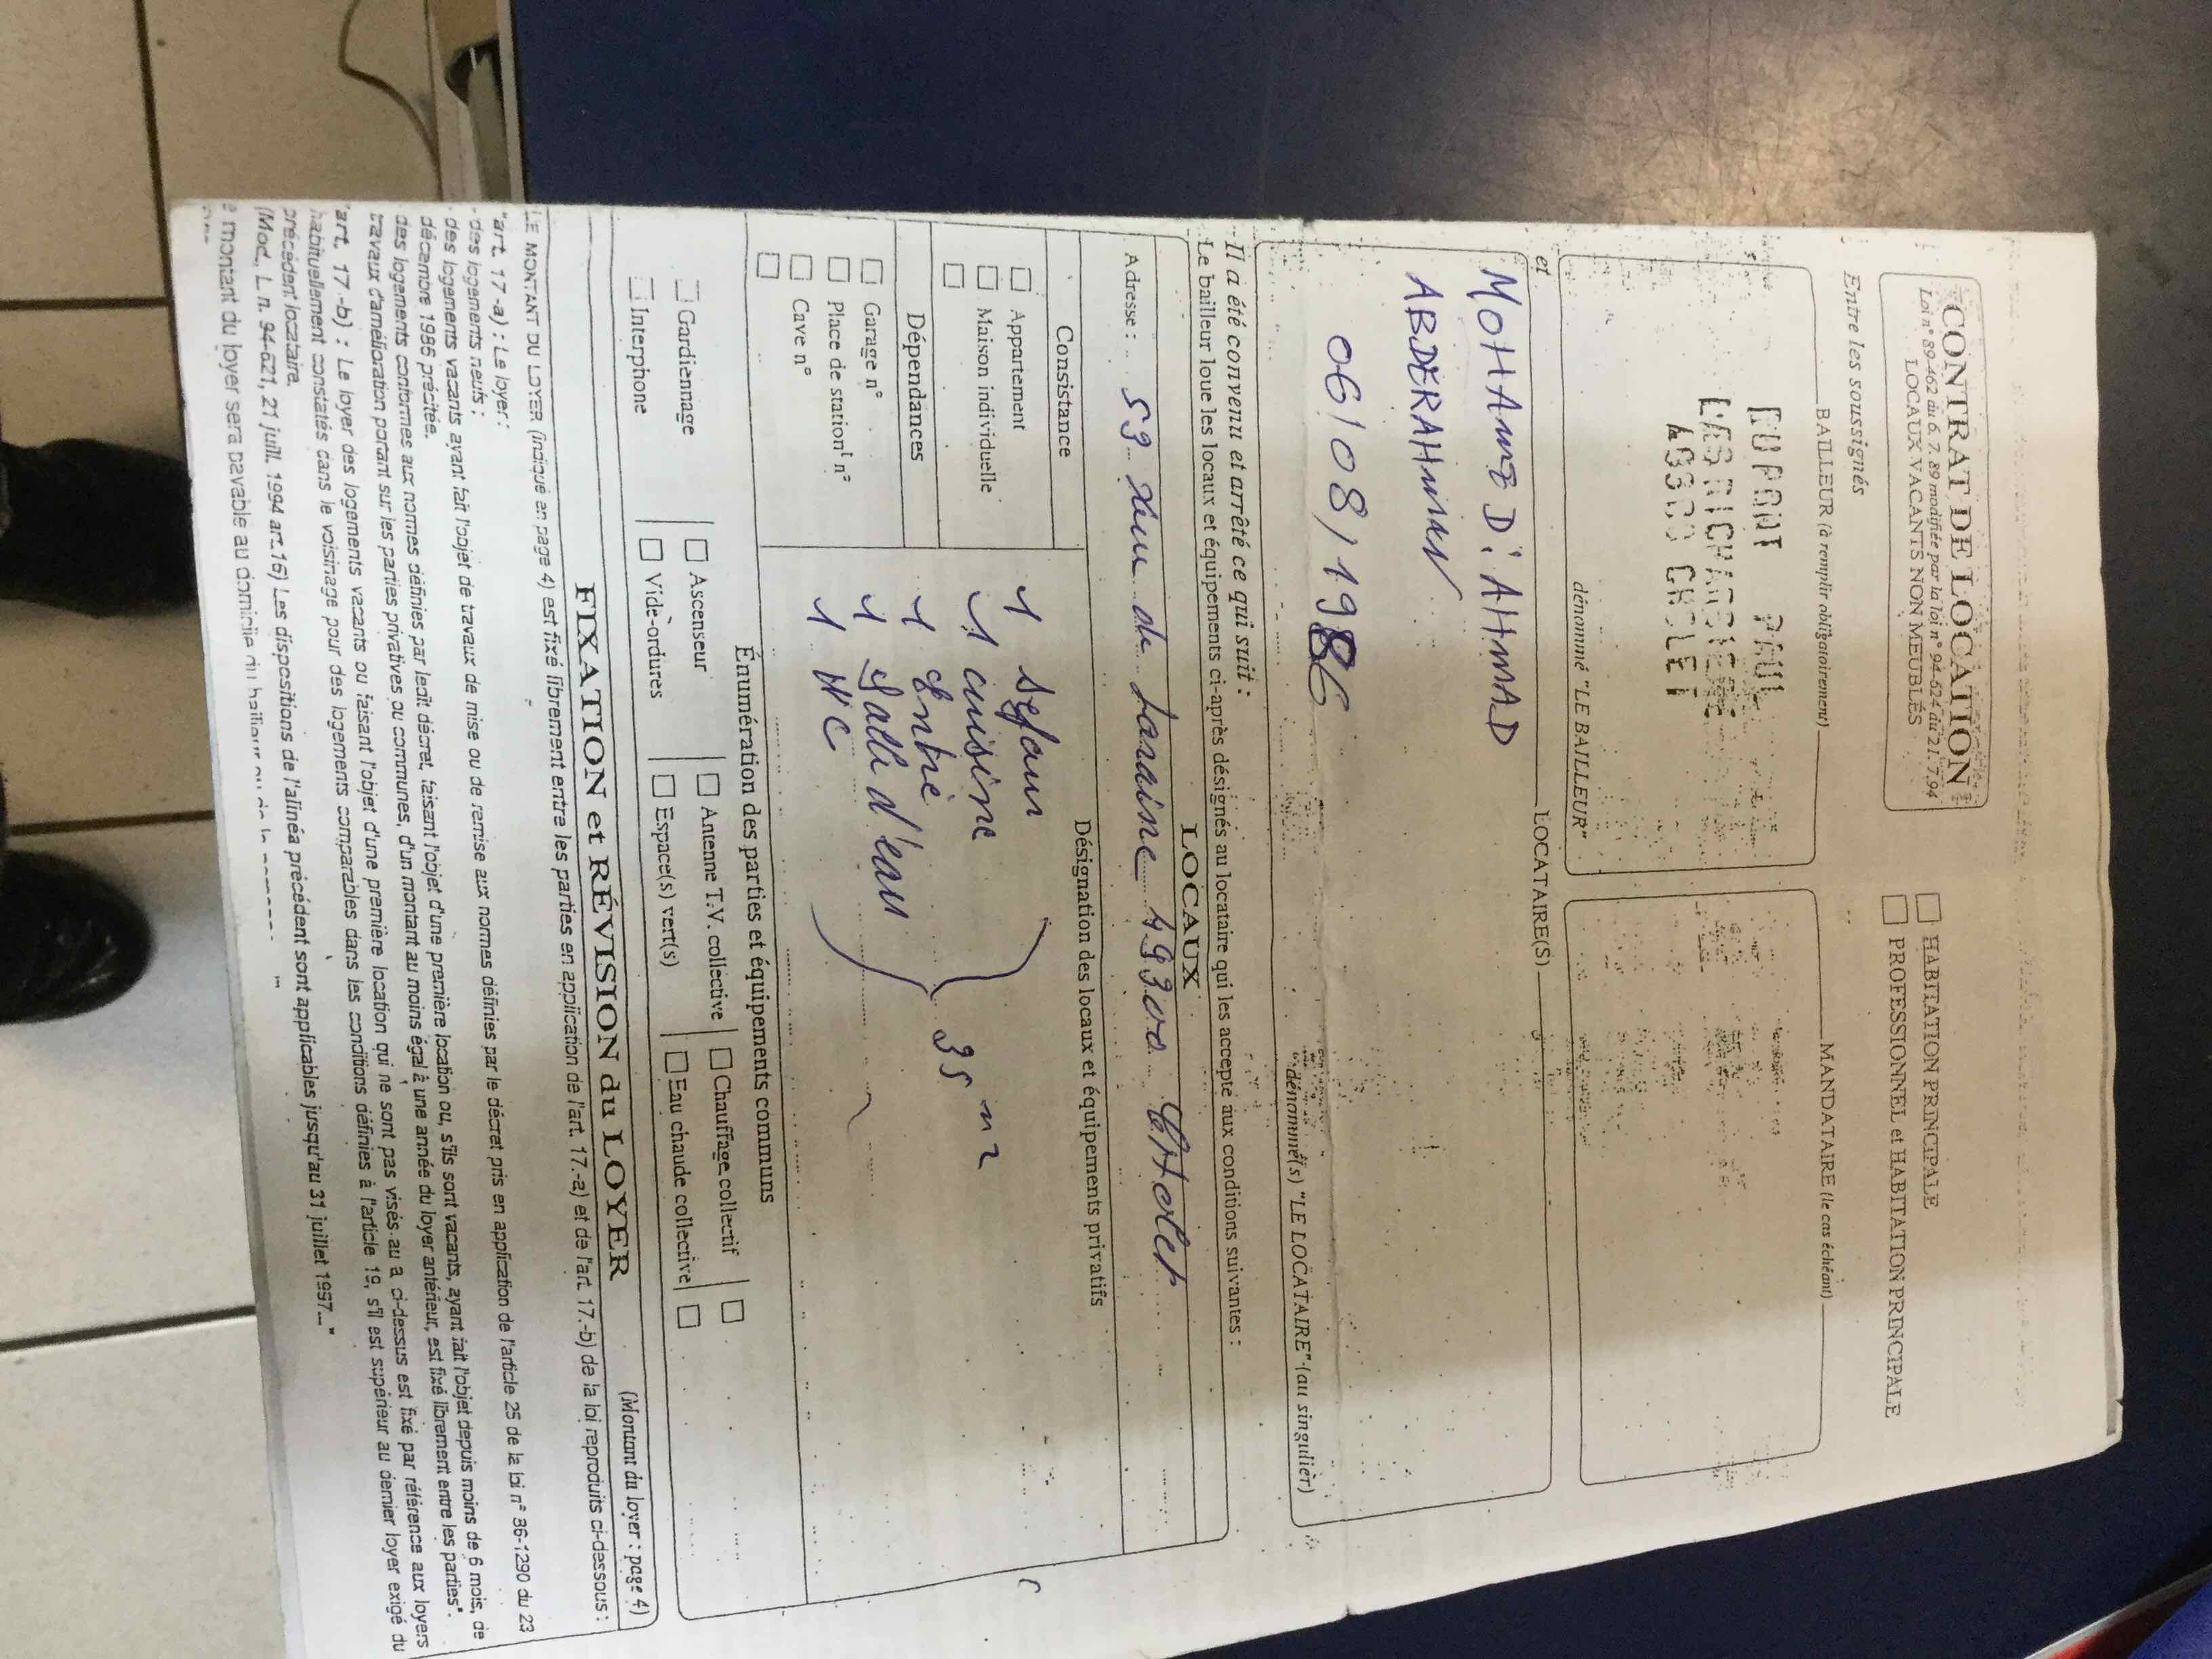 CONTRAT DE LOCATION
Loi n° 89-462 du 6. 7. 89 modifiée par la loi n° 94-624 du 21.7.94
LOCAUX VACANTS NON MEUBLÉS
HABITATION PRINCIPALE
PROFESSIONNEL et HABITATION PRINCIPALE
Entre les soussignés
BAILLEUR (à remplir obligatoirement)
MANDATAIRE (le cas échéant)
DUPONT PAUL
CHOLET
dénommé "LE BAILLEUR"
et
LOCATAIRE(S)
MOHAMED D'AHMAD
ABDERAHMAN
06/08/1986
dénommé(s) "LE LOCATAIRE" (au singulier)
Il a été convenu et arrêté ce qui suit :
Le bailleur loue les locaux et équipements ci-après désignés au locataire qui les accepte aux conditions suivantes :
LOCAUX
Adresse : 53 de Lorraine 49300 CHolet
Consistance
Désignation des locaux et équipements privatifs
Appartement
Maison individuelle
Dépendances
Garage n°
Place de stationt n°
Cave n°
1 séjour
1 cuisine
1 entré
1 Salle d'eau
1 WC
35 m2
Énumération des parties et équipements communs
Gardiennage
Ascenseur
Antenne T.V. collective
Chauffage collectif
Interphone
Vide-ordures
Espace(s) vert(s)
Eau chaude collective
FIXATION et RÉVISION du LOYER
(Montant du loyer : page 4)
LE MONTANT DU LOYER (indiqué en page 4) est fixé librement entre les parties en application de l'art. 17.-a) et de l'art. 17.-b) de la loi reproduits ci-dessous :
"art. 17 -a) : Le loyer :
- des logements neufs ;
- des logements vacants ayant fait l'objet de travaux de mise ou de remise aux normes définies par le décret pris en application de l'article 25 de la loi n° 86-1290 du 23
décembre 1986 précitée.
des logements conformes aux normes définies par ledit décret, faisant l'objet d'une première location ou, s'ils sont vacants, ayant fait l'objet depuis moins de 6 mois, de
travaux d'amélioration portant sur les parties privatives ou communes, d'un montant au moins égal à une année du loyer antérieur, est fixé librement entre les parties".
"art. 17 -b) : Le loyer des logements vacants ou faisant l'objet d'une première location qui ne sont pas visés au a ci-dessus est fixé par référence aux loyers
habituellement constatés dans le voisinage pour des logements comparables dans les conditions définies à l'article 19, s'il est supérieur au dernier loyer exigé du
précédent locataire.
(Mod., L. n. 94-624, 21 juill. 1994 art.16) Les dispositions de l'alinéa précédent sont applicables jusqu'au 31 juillet 1997..."
e montant du loyer sera payable au domicile du bailleur ou de la